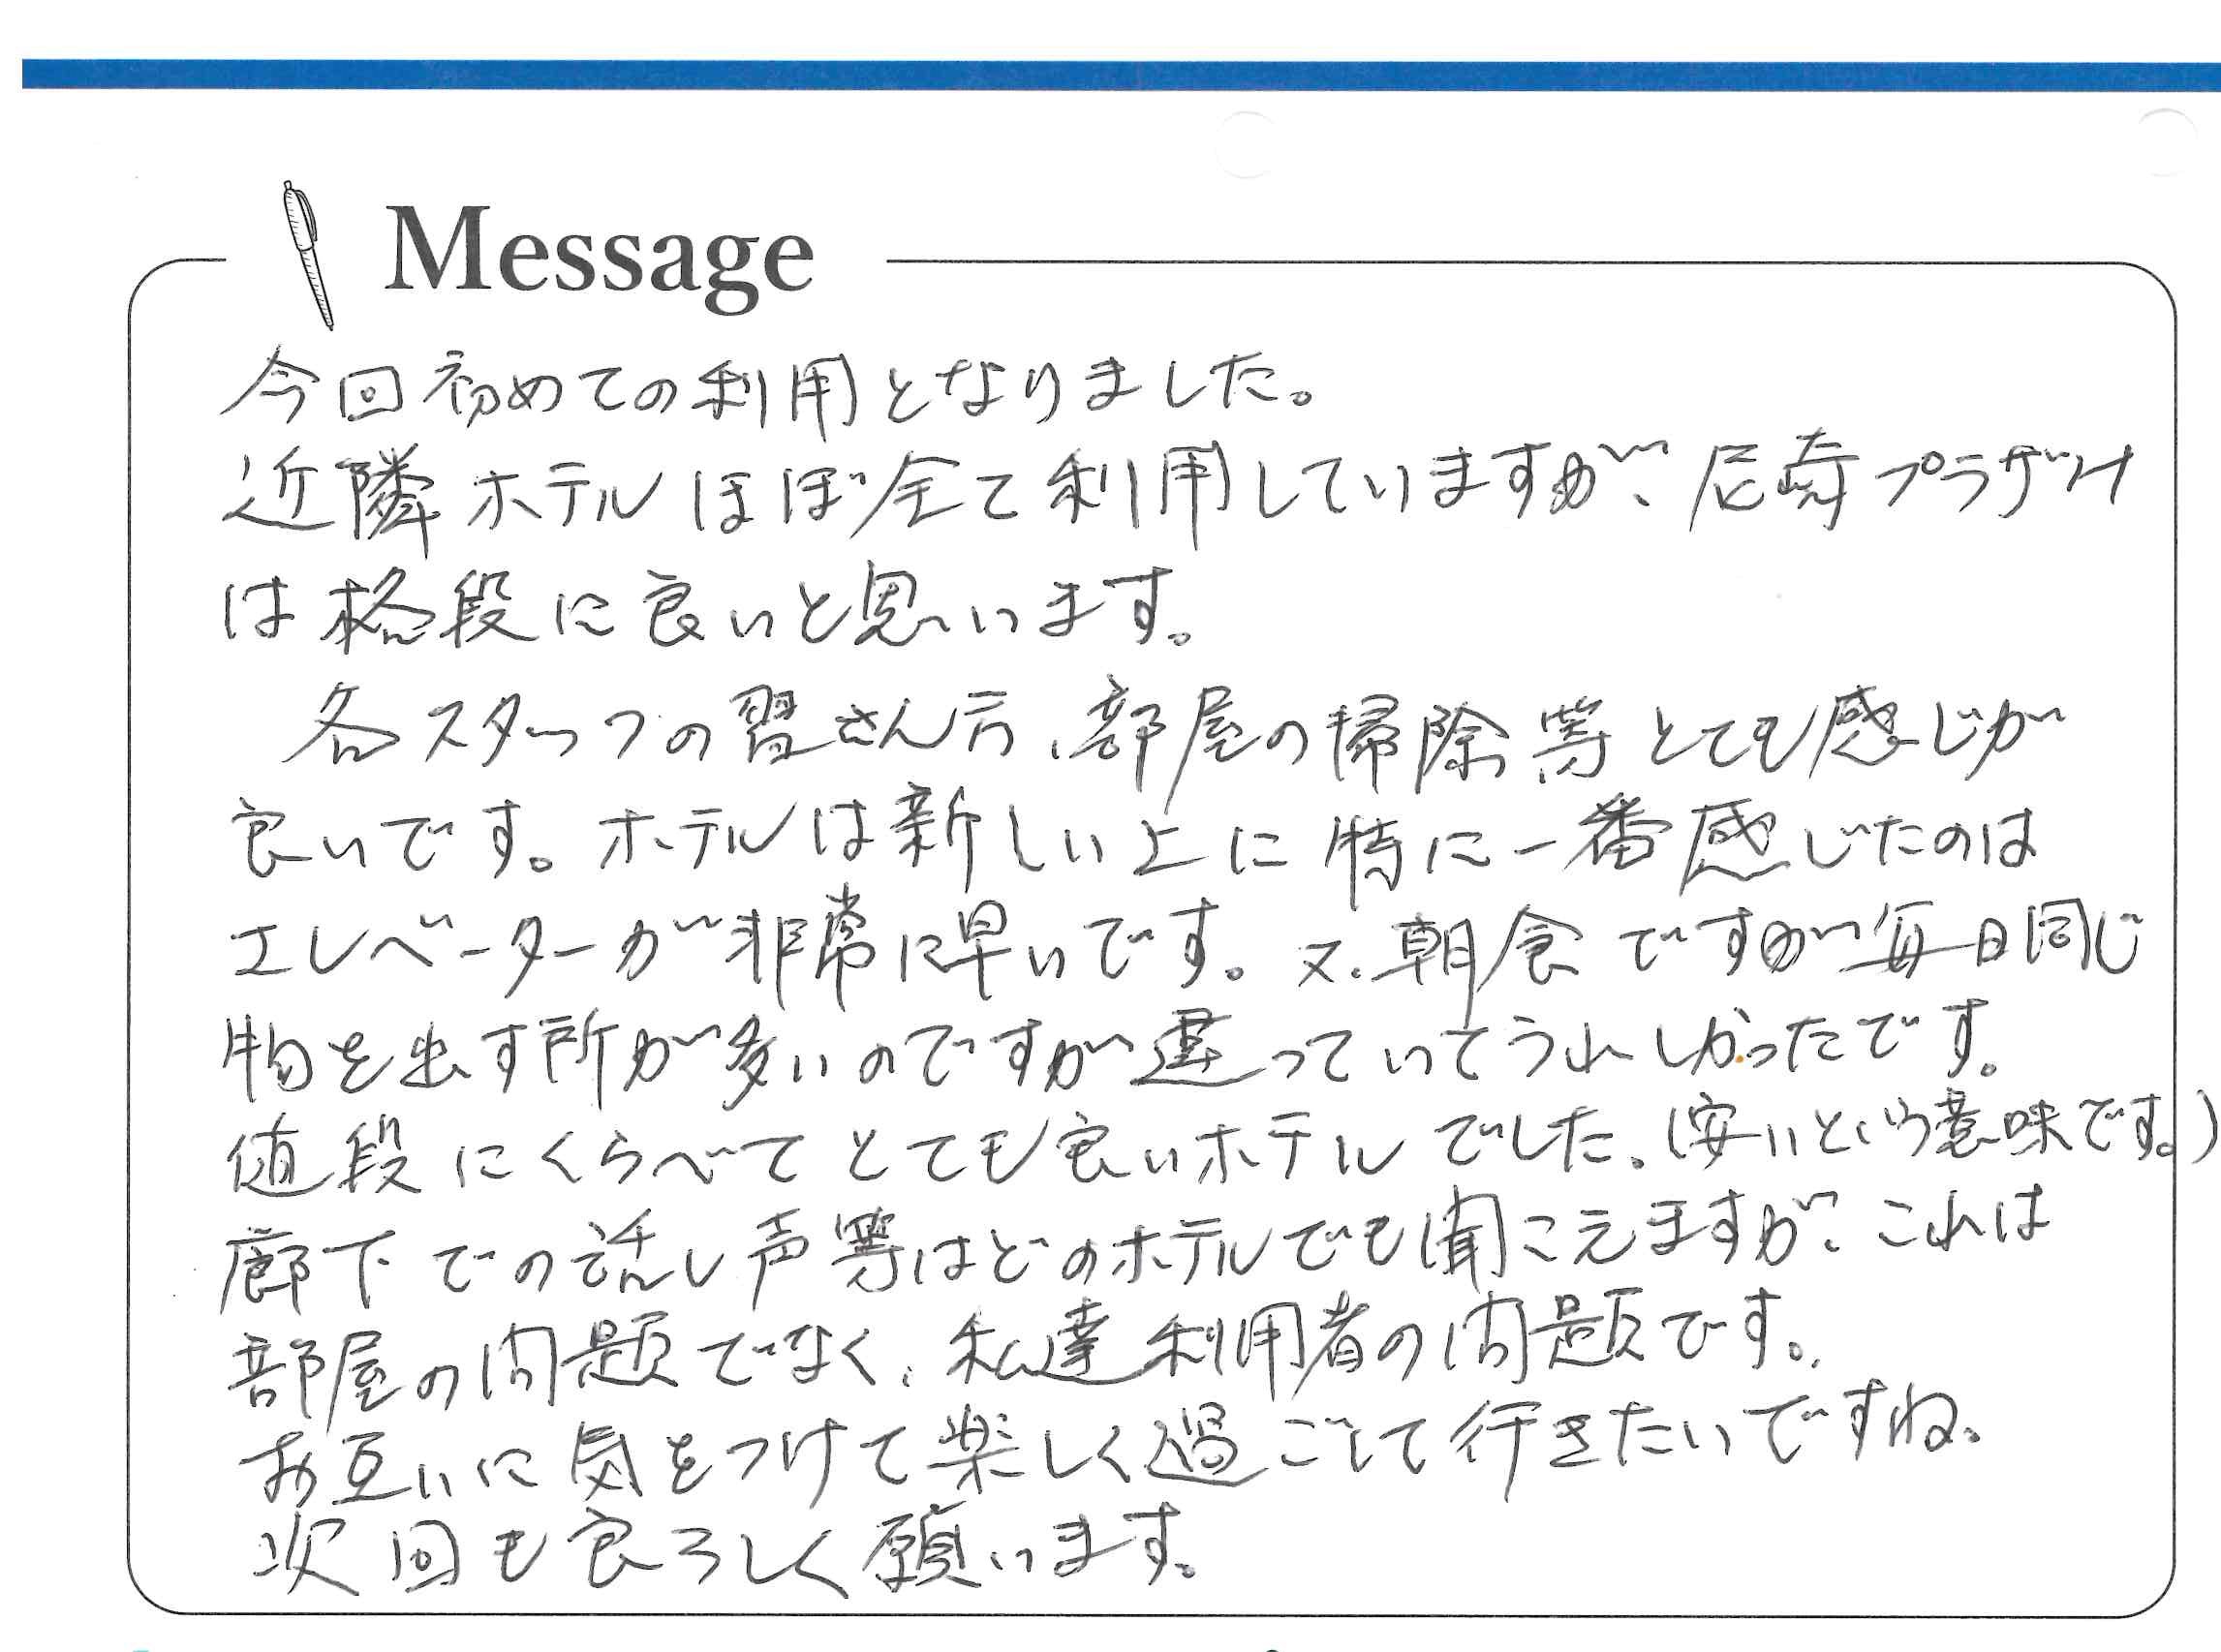 Message
今回初めての利用となりました。
近隣ホテルほぼ全て利用していますが、尼崎プラザ
は格段に良いと思います。
各スタッフの皆さん方、部屋の掃除等とても感じが
良いです。ホテルは新しい上に特に一番感じたのは
エレベーターが非常に早いです。又、朝食ですが毎日同じ
物を出す所が多いのですが違っていてうれしかったです。
値段にくらべてとても良いホテルでした。(安いという意味です。)
廊下での話し声等はどのホテルでも聞こえますが、これは
部屋の問題でなく、私達利用者の問題です。
お互いに気をつけて楽しく過ごして行きたいですね。
次回も良ろしく願います。